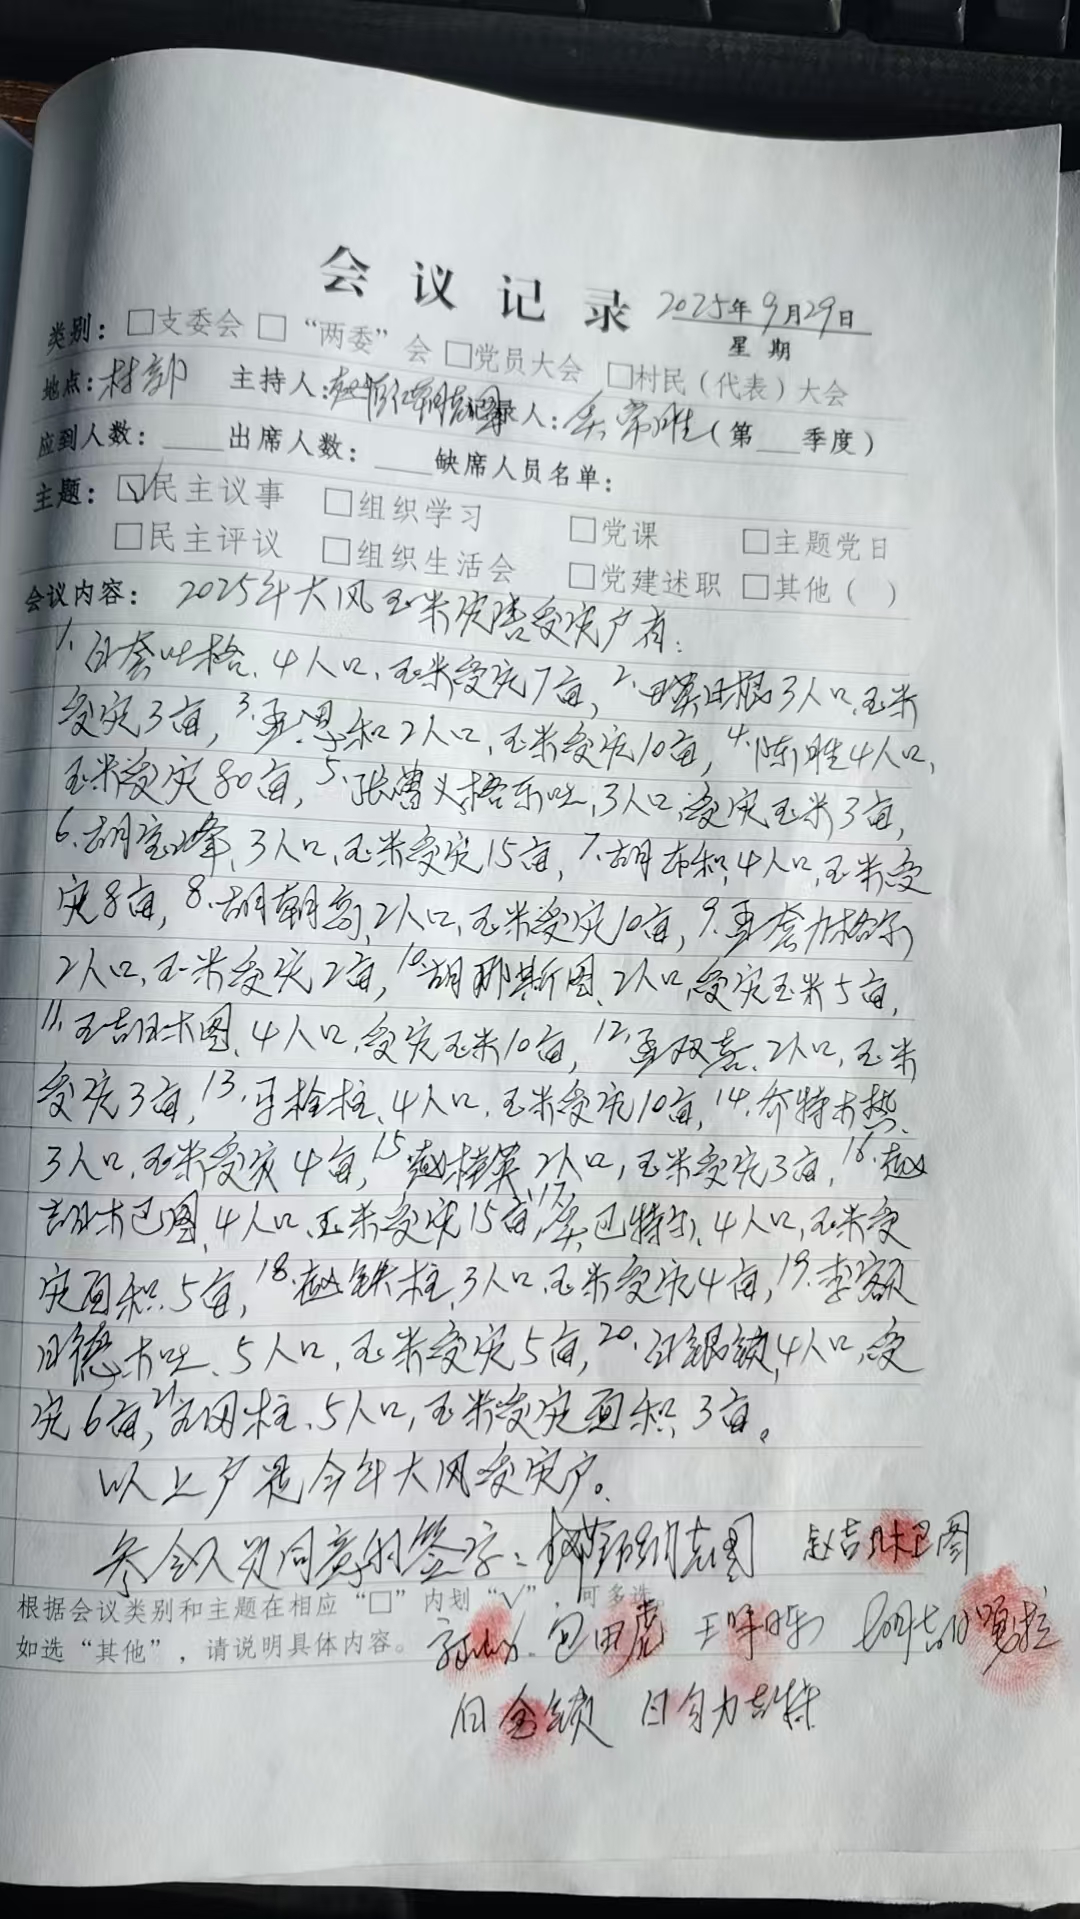 会议记录 2025年9月29日
星期
类别：□支委会 □“两委”会 □党员大会 □村民（代表）大会
地点：村部 主持人： 记录人：吴常胜（第___季度）
应到人数：____出席人数：____缺席人员名单：
主题：☑民主议事 □组织学习 □党课 □主题党日
□民主评议 □组织生活会 □党建述职 □其他（ ）
会议内容：2025年大风玉米灾害受灾户有：
1.白套吐格、4人口、玉米受灾7亩，2. 3人口、玉米
受灾3亩，3. 恩和2人口、玉米受灾10亩，4.陈胜4人口、
玉米受灾80亩，5. 3人口，受灾玉米3亩，
6.胡宝峰、3人口、玉米受灾15亩，7.胡布和、4人口、玉米受
灾8亩，8.胡朝 、2人口、玉米受灾10亩，9. 套力格尔
2人口、玉米受灾2亩，10.胡那斯图、2人口，受灾玉米5亩，
11. 图、4人口，受灾玉米10亩，12. 双喜、2人口，玉米
受灾3亩，13. 栓柱、4人口、玉米受灾10亩，14.
3人口、玉米受灾4亩，15.赵 英2人口，玉米受灾3亩，16.赵
吉日木巴图、4人口、玉米受灾15亩，17.吴巴特尔、4人口，玉米受
灾面积5亩，18.赵铁柱、3人口、玉米受灾4亩，19.李额
日德木吐、5人口，玉米受灾5亩，20.白银锁、4人口，受
灾6亩，21. 柱、5人口，玉米受灾面积3亩。
以上户是今年大风受灾户。
参会人员同意的签字： 赵吉日木巴图
根据会议类别和主题在相应“□”内划“√”，可多选。
如选“其他”，请说明具体内容。
包田虎
白金锁